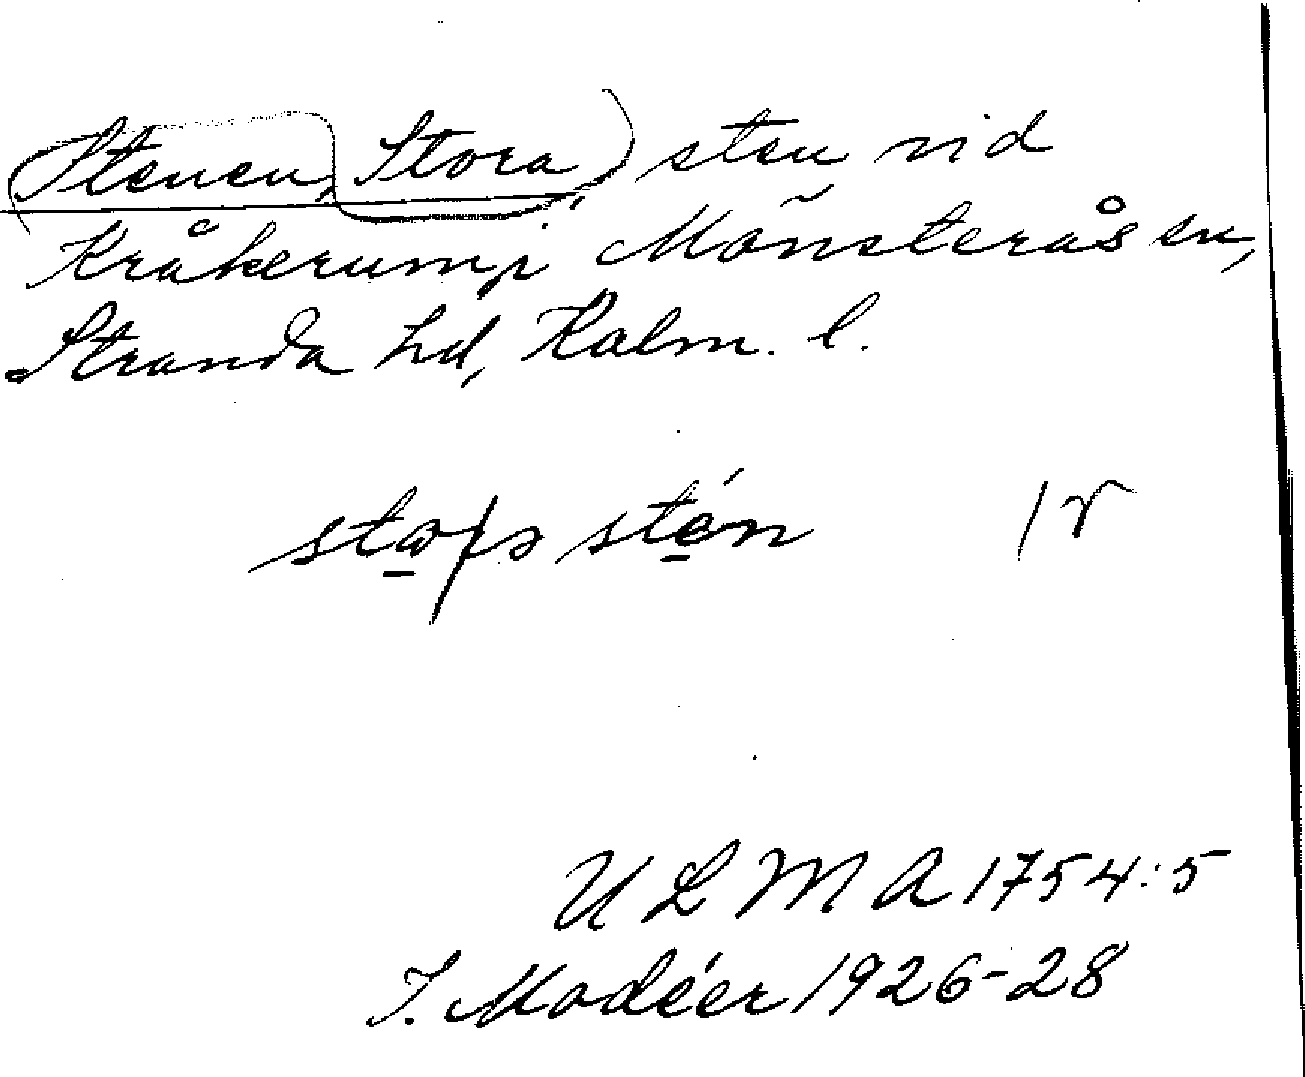 Stenen, Stora, sten vid
Kråkerum i Mönsterås sn,
Stranda hd, Kalm. l.
stén
ULMA 1754:5
I. Modéer 1926-28